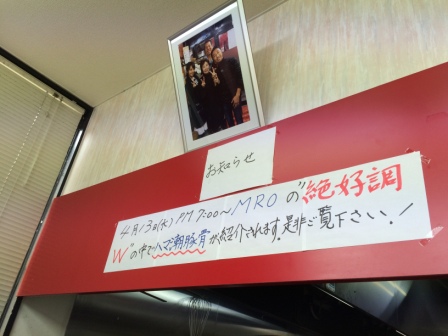 お知らせ
4月13日(水) PM 7:00～MROの"絶好調
W"の中でハマ潮豚骨が紹介されます。是非ご覧下さい!